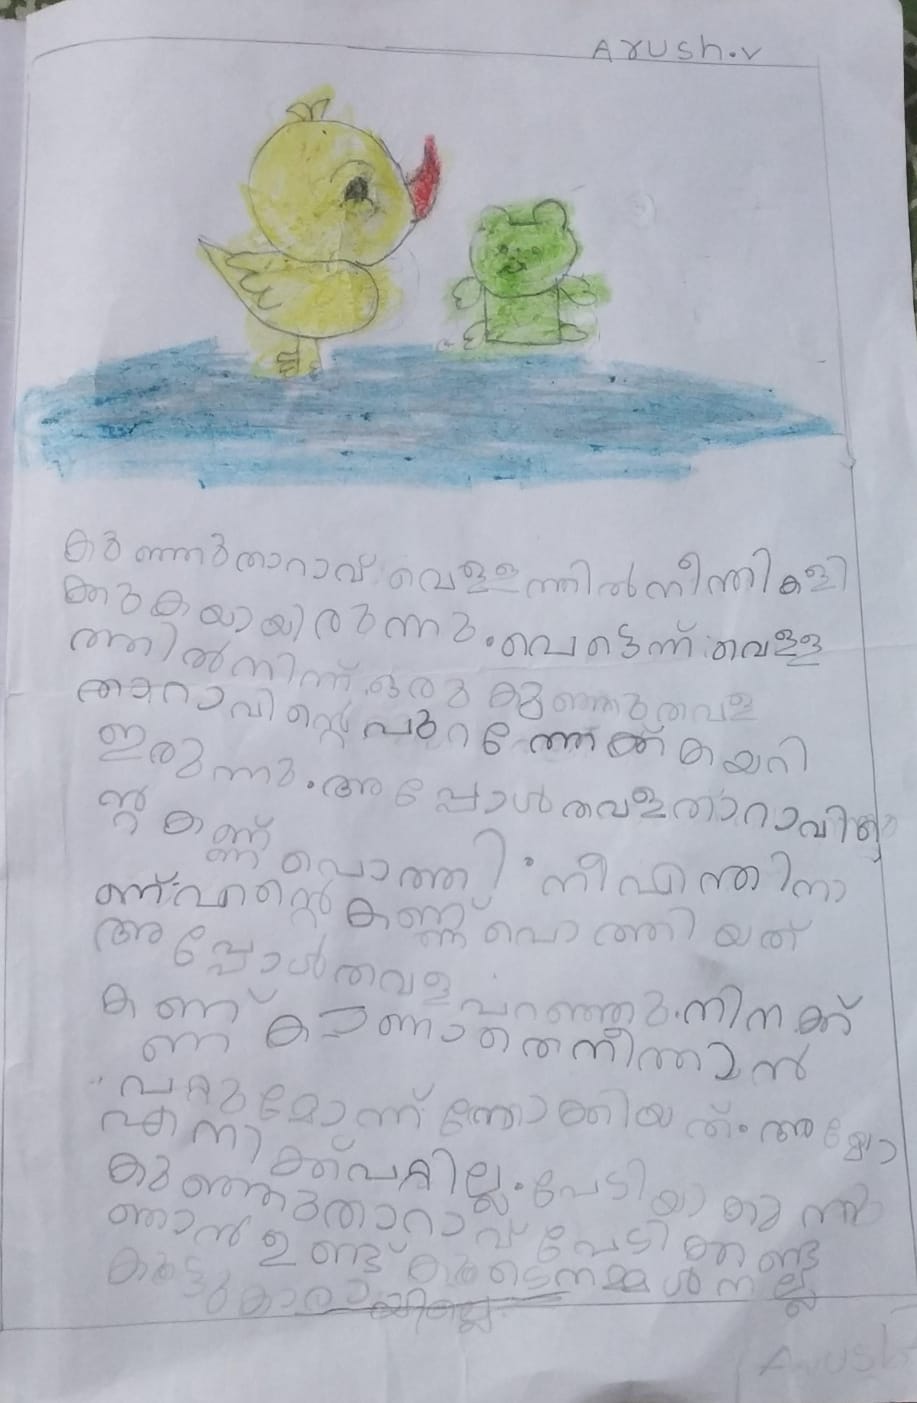 Arush.v
കുഞ്ഞുതാറാവ് വെള്ളത്തിൽ നീന്തി കളി
ക്കുകയായിരുന്നു. പെട്ടെന്ന് വെള്ള
ത്തിൽ നിന്ന് ഒരു കുഞ്ഞുതവള
താറാവിന്റെ പുറത്തേക്ക് കയറി
ഇരുന്നു. അപ്പോൾ തവള താറാവി
ന്റ കണ്ണ് പൊത്തി. നീ എന്തിനാ
ണ് എന്റെ കണ്ണ് പൊത്തിയത്
അപ്പോൾ തവള പറഞ്ഞു. നിനക്ക്
കണ്ണ് കാണാതെ നീന്താൻ
പറ്റുമോന്ന് നോക്കിയത്. അയ്യോ
എനിക്ക് പറ്റില്ല. പേടിയാകുന്നു
കുഞ്ഞുതാറാവ് പേടിക്കണ്ട
ഞാൻ ഉണ്ട് കൂടെ നമ്മൾ നല്ല
കൂട്ടുകാരായില്ലെ.
Arush